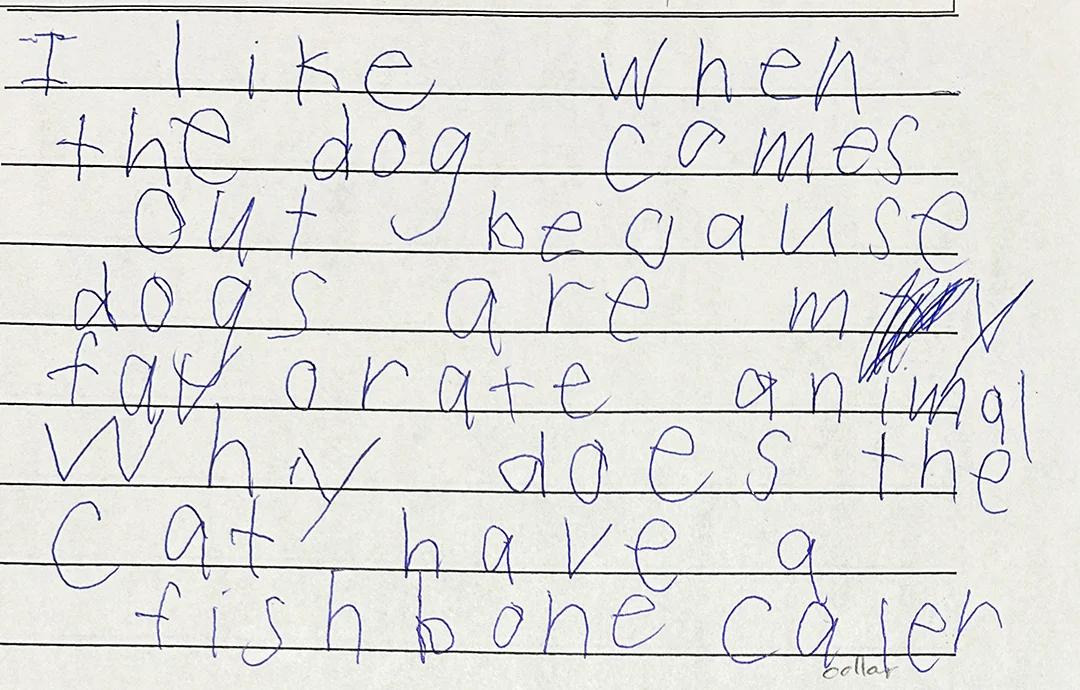 I like when
the dog comes
out begause
dogs are my
favorate animal
Why does the
Cat have a
fishbone caler
collar